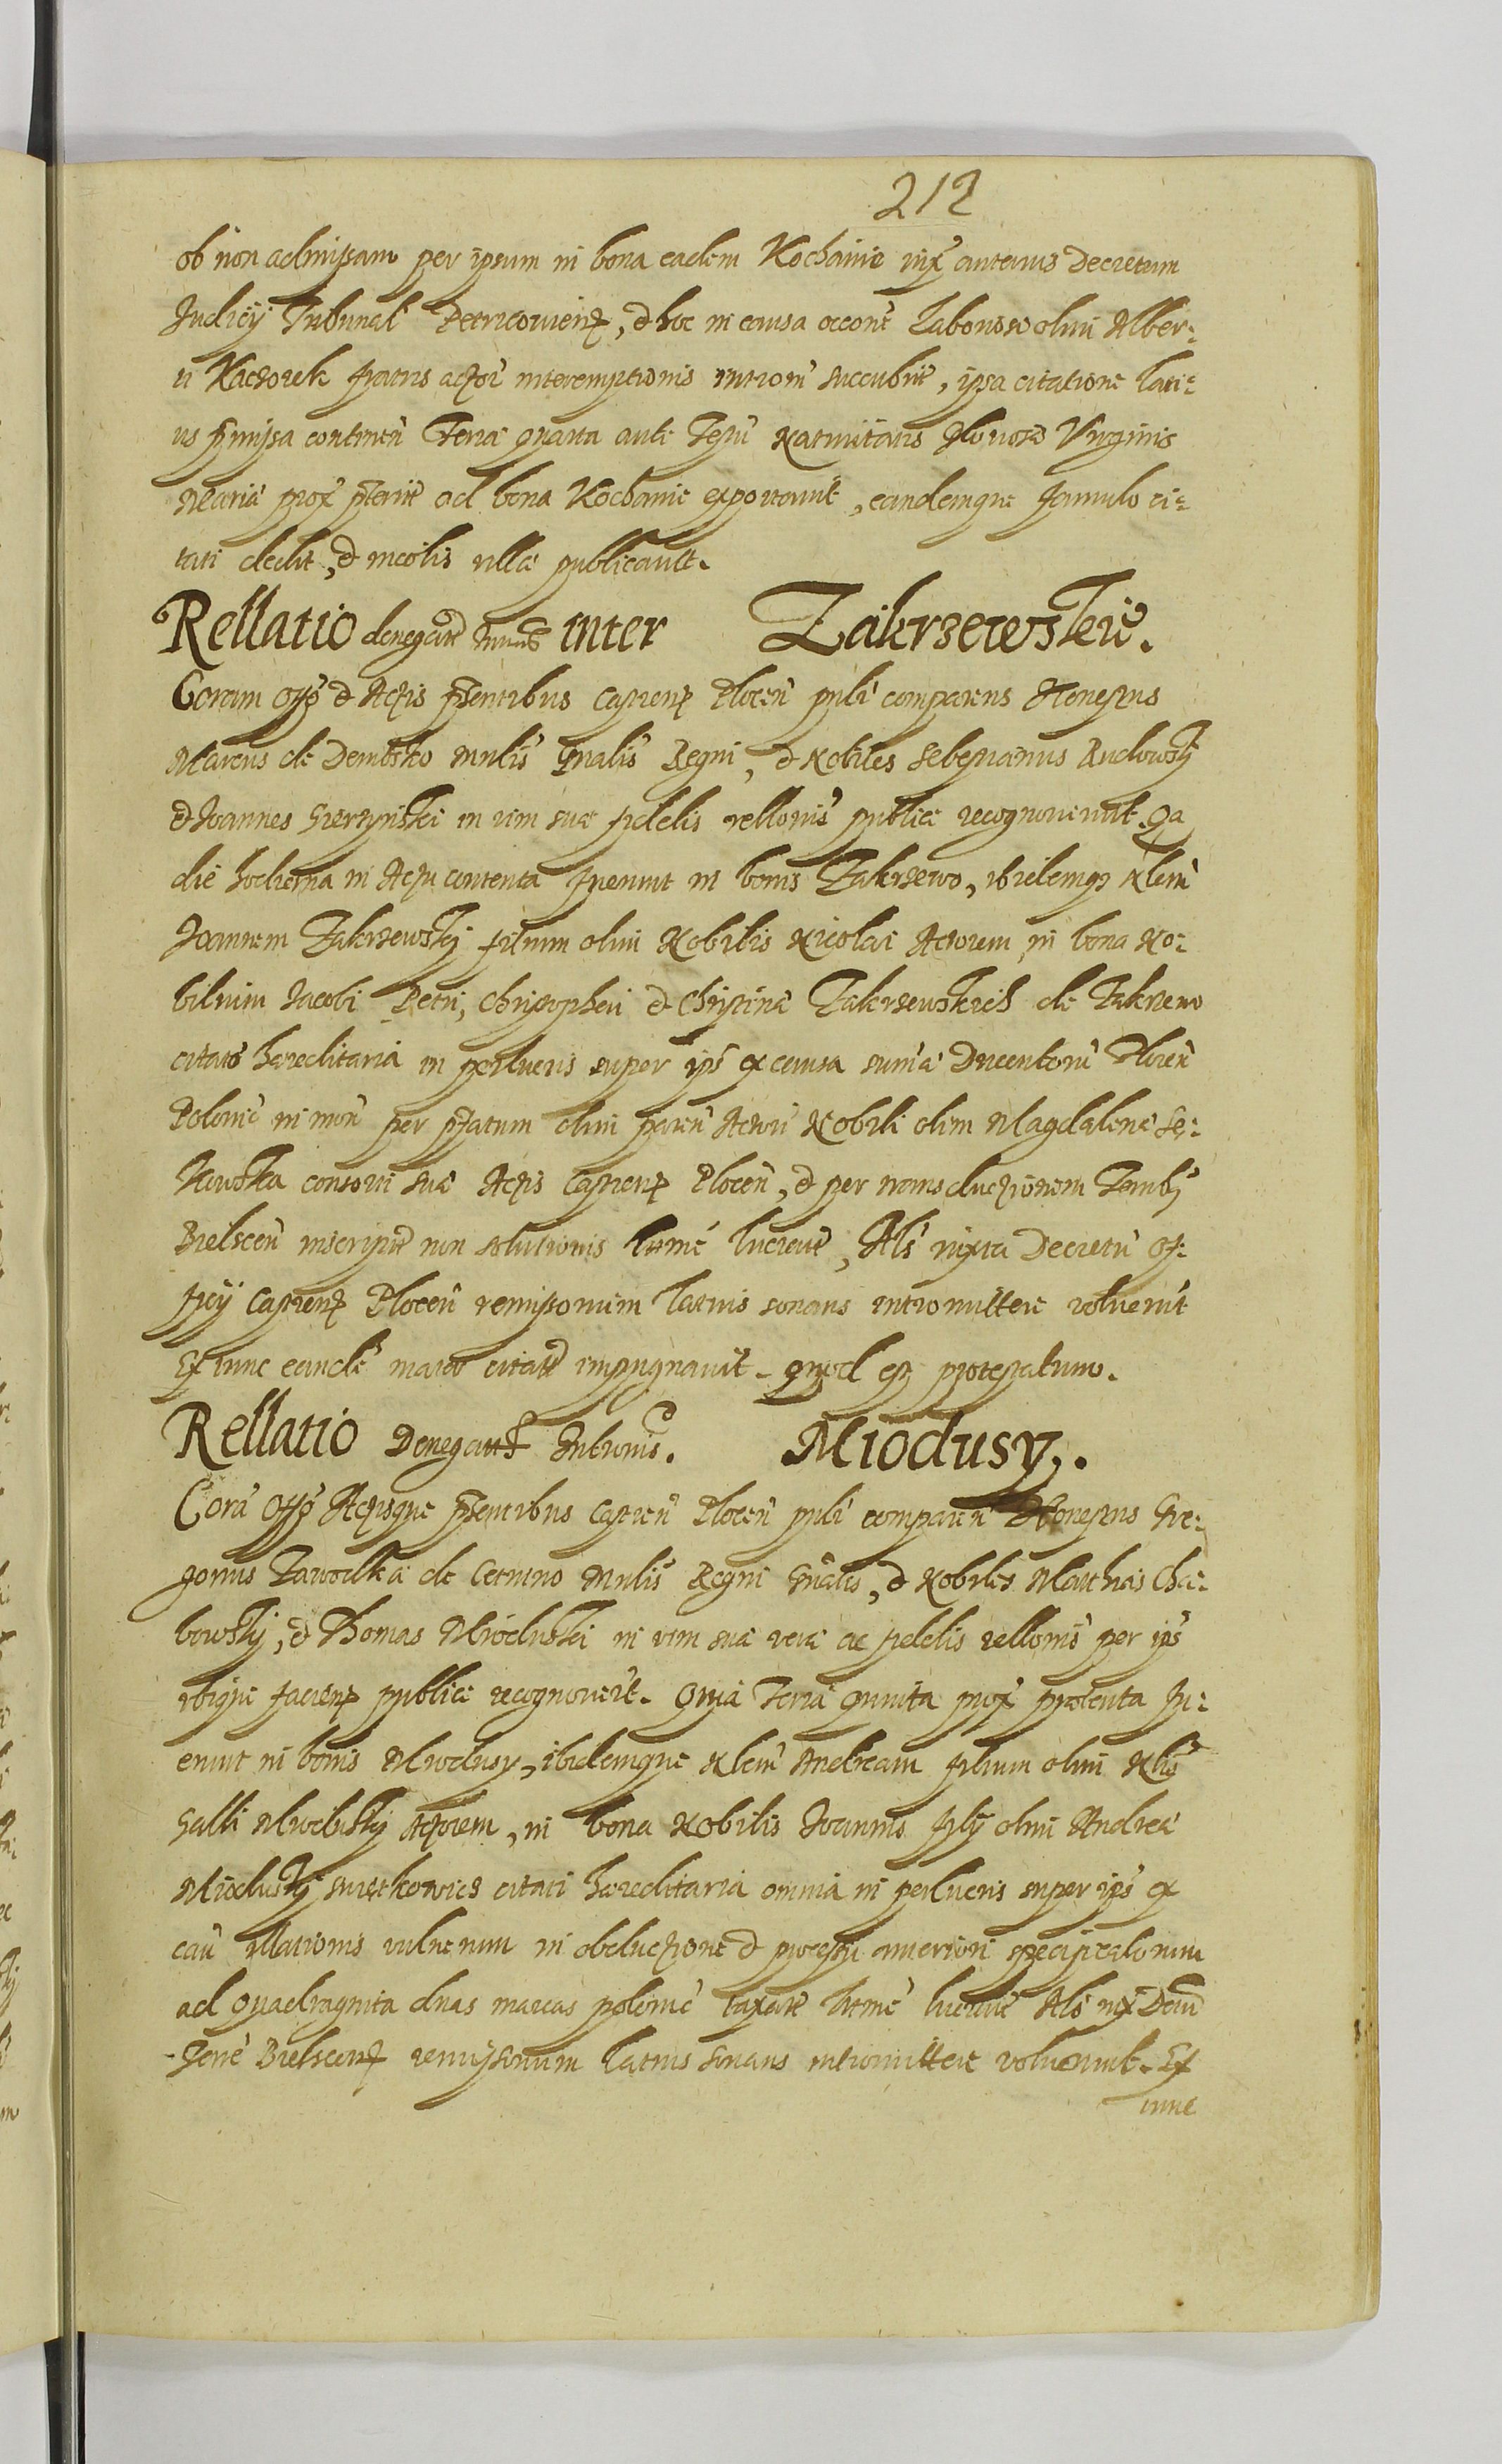 212
ob non admissam per ipsum in bona eadem Kochanie iux anterius Decretum
Judicij Tribunal Petricouien, & hoc in causa occone Laboriosi olim Alber-
ti Kaczorek fratris actor interemptionis introm succubuit, ipsa citatione lati-
us pmissa continen Feria quarta ante Festu Natiuitatis Gloriosae Virginis
Mariae prox pterit ad bona Kochanie exportauit, eandemque famulo ci-
tati dedit, & incolis illae publicauit.
Rellatio denegate inter Zakrzewskie.
Coram Offo & Actis pntibus Castren Plocen psli comparens Honestus
Marcus de Dembsko Mnlis Gnalis Regni, & Nobiles Sebestianus Rudowskj
& Joannes Gierzynski in vim suae fidelis rellonis publice recognouerunt. Qa
die hodierna in Actu contenta fuerunt in bonis Zakrzewo, ibidemqz Nlem
Joannem Zakrzewskj filium olim Nobilis Nicolai Actorem, in bona No-
bilium Jacobi Petri, Christopheri & Christinae Zakrzewskich de Zakrzewo
citator haereditaria in perlucris super ips ex causa summae Ducentoru Floren
Polonic in mon per pfatum olim paren Actori Nobili olim Magdalenae Se-
kowska consorti suae Actis Castren Plocen, & per transductionem Zembj
Bielscen inscripte non solutionis ltime lucrate, Als iuxta Decretu Of-
ficij Castren Plocen remissorium latius sonans intromittere voluerut
Ex tunc eande maior citator impugnauit. quod est protestatum.
Rellatio Denegatt Intromis. Miodusy.
Cora Offo Actisque pntibus Castren Plocen psli comparen Honestus Gre-
gorius Zawodka de Cetnino Mnlis Regni Gnalis, & Nobiles Mathias Cha-
bowskj, & Thomas Mioduski in vim suae verae ac fidelis rellonis per ips
ibique facien publice recognouerut. Quia Feria quinta prox praeterita fu-
erunt in bonis Miodusy, ibidemque Nlem Andream filium olim Nlis
Galli Mioduskj Actorem, in bona Nobilis Joannis filij olim Andreae
Mioduskj swietkowicz citati haereditaria omnia in perlucris super ips ex
cau illationis vulnerum in obductione & processu anteriori specificatorum
ad Quadraginta duas marcas polonic taxate ltime lucrate Als iux Decru
Terre Bielscen remissorium latius sonans intromittere voluerunt. Ex
tunc